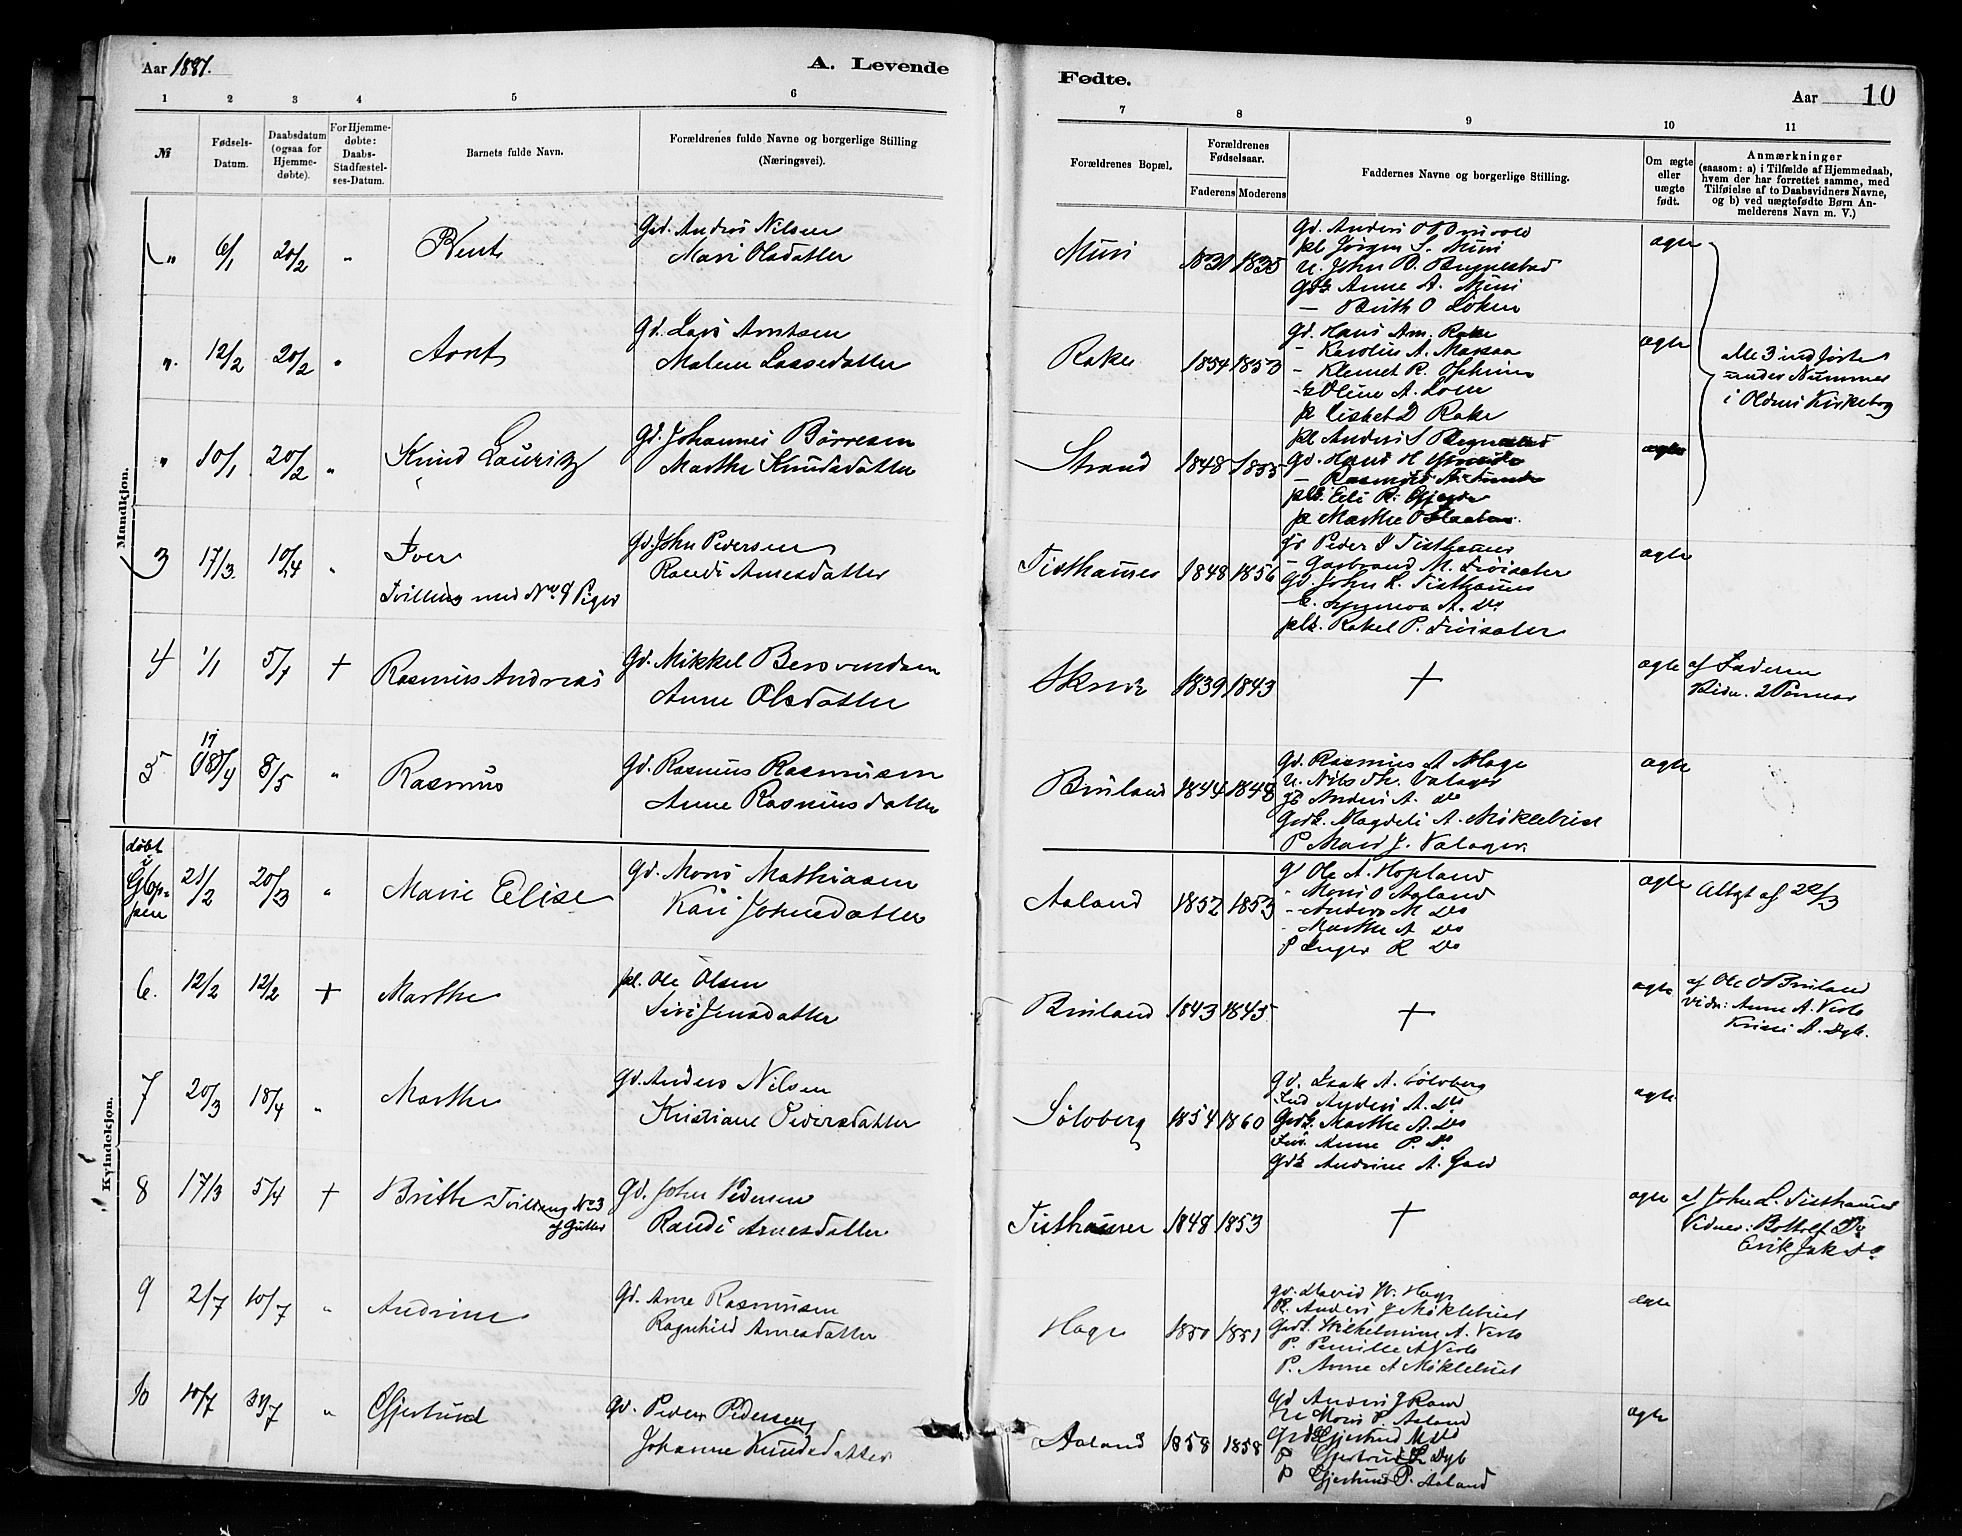 Aar 1881.
A. Levende
Fødte.
Aar
10
1 2 3 4 5 6
7 8 9 10 11
№
Fødsels-
Datum.
Daabsdatum
(ogsaa for
Hjemme-
døbte).
For Hjemme-
døbte:
Daabs-
Stadfæstel-
ses-Datum.
Barnets fulde Navn.
Forældrenes fulde Navne og borgerlige Stilling
(Næringsvei).
Forældrenes Bopæl.
Forældrenes
Fødselsaar.
Faderens Moderens
Faddernes Navne og borgerlige Stilling.
Om ægte
eller
uægte
født.
Anmærkninger
(saasom: a) i Tilfælde af Hjemmedaab,
hvem der har forrettet samme, med
Tilføielse af to Daabsvidners Navne,
og b) ved uægtefødte Børn An-
melderens Navn m. V.)
Mandkjøn.
" 6/1 20/2 " Bernt
Gd. Anders Nilsen
Mari Olsdatter
Muri 1831 1835
Gd. Anders
pl Jørgen S. Muri
u. John
Gdk Anne A. Muri
— Brith O Løken
ægte
". 12/2 20/2 " Arnt
Gd. Lars Arntsen
Malene Lassedatter
Rake 1854 1853
Gd. Hans Am. Rake
- Karolius A.
- Klemet R.
Oline A.
p Lisbet D Rake
ægte
alle 3 indførte
under Nummer
i Oldens Kirkebog
" 10/1 20/2 " Knud Lauritz
Gd. Johannes Børresen
Marthe Knudsdatter
Strand 1848 1855
pl Anders S
Gd. Hans H
Rasmus
Eli R.
p Marthe O
ægte
3 17/3 10/4 " Iver
Tvilling med No 8 Piger
Gd. John Pedersen
Randi Arnesdatter
Tisthamer 1848 1856
Peder I Tisthamer
- Garbrand M.
Gd. John L. Tisthamer
A. Do
Rakel P.
ægte
4 1/1 5/1 + Rasmus Andreas
Gd. Mikkel Bersvendsen
Anne Olsdatter
Skrede 1839 1843
+
ægte
af Faderen
2
5 17 18/4 8/5 " Rasmus
Gd. Rasmus Rasmusen
Anne Rasmusdatter
Bruland 1844 1848
Gd. Rasmus A Hage
u. Nils Valager
Anders A. Do
Gdk. Magdeli A. Møklebust
P Mari J. Valager.
ægte
døbt
i
Glop-
pen
21/2 20/3 " Marie Elise
Gd. Mons Mathiasen
Kari Johnsdatter
Aaland 1852 1853
g Ole A. Hopland
- Mons O Aaland
- Anders M Do
- Marthe A Do
P Inger R Do
ægte
Attest af 22/3
Kvindekjøn.
6. 12/2 12/2 + Marthe
pl. Ole Olsen
Siri Jensdatter
Bruland 1843 1845
+
ægte
af Ole O Bruland
vidn: Anne A.
A. Dyb.
7 20/3 18/4 " Marthe
Gd. Anders Nilsen
Kristiane Pedersdatter
Sølvberg 1854 1860
gd. Isak A. Sølvberg
Anders A. Do
Gdk. Marthe A. Do
Anne P. Do
Gdk Andrine A.
ægte
8 17/3 5/4 + Brithe Tvilling No 3
af Gutter
Gd. John Pedersen
Randi Arnesdatter
Tisthamer 1848 1853
+
ægte
af John L. Tisthamer
Vidner: Bottolf Do
Erik Jak Do
9 2/7 10/7 " Andrine
Gd. Arne Rasmusen
Ragnhild Arnesdatter
Hage 1850 1851
gd. David W. Hage
Pl. Anders J Møklebust
Gdk. Wilhelmine A.
P. Pernille A
P. Anne A Møklebust
ægte
10 10/7 31/7 " Gjertrud
Gd. Peder Pedersen
Johanne Knudsdatter
Aaland 1858 1858
Gd Anders J
Mons P. Aaland
Gdk Gjertrud M
p Gjertrud L Dyb
p Gjertrud P. Aaland
ægte